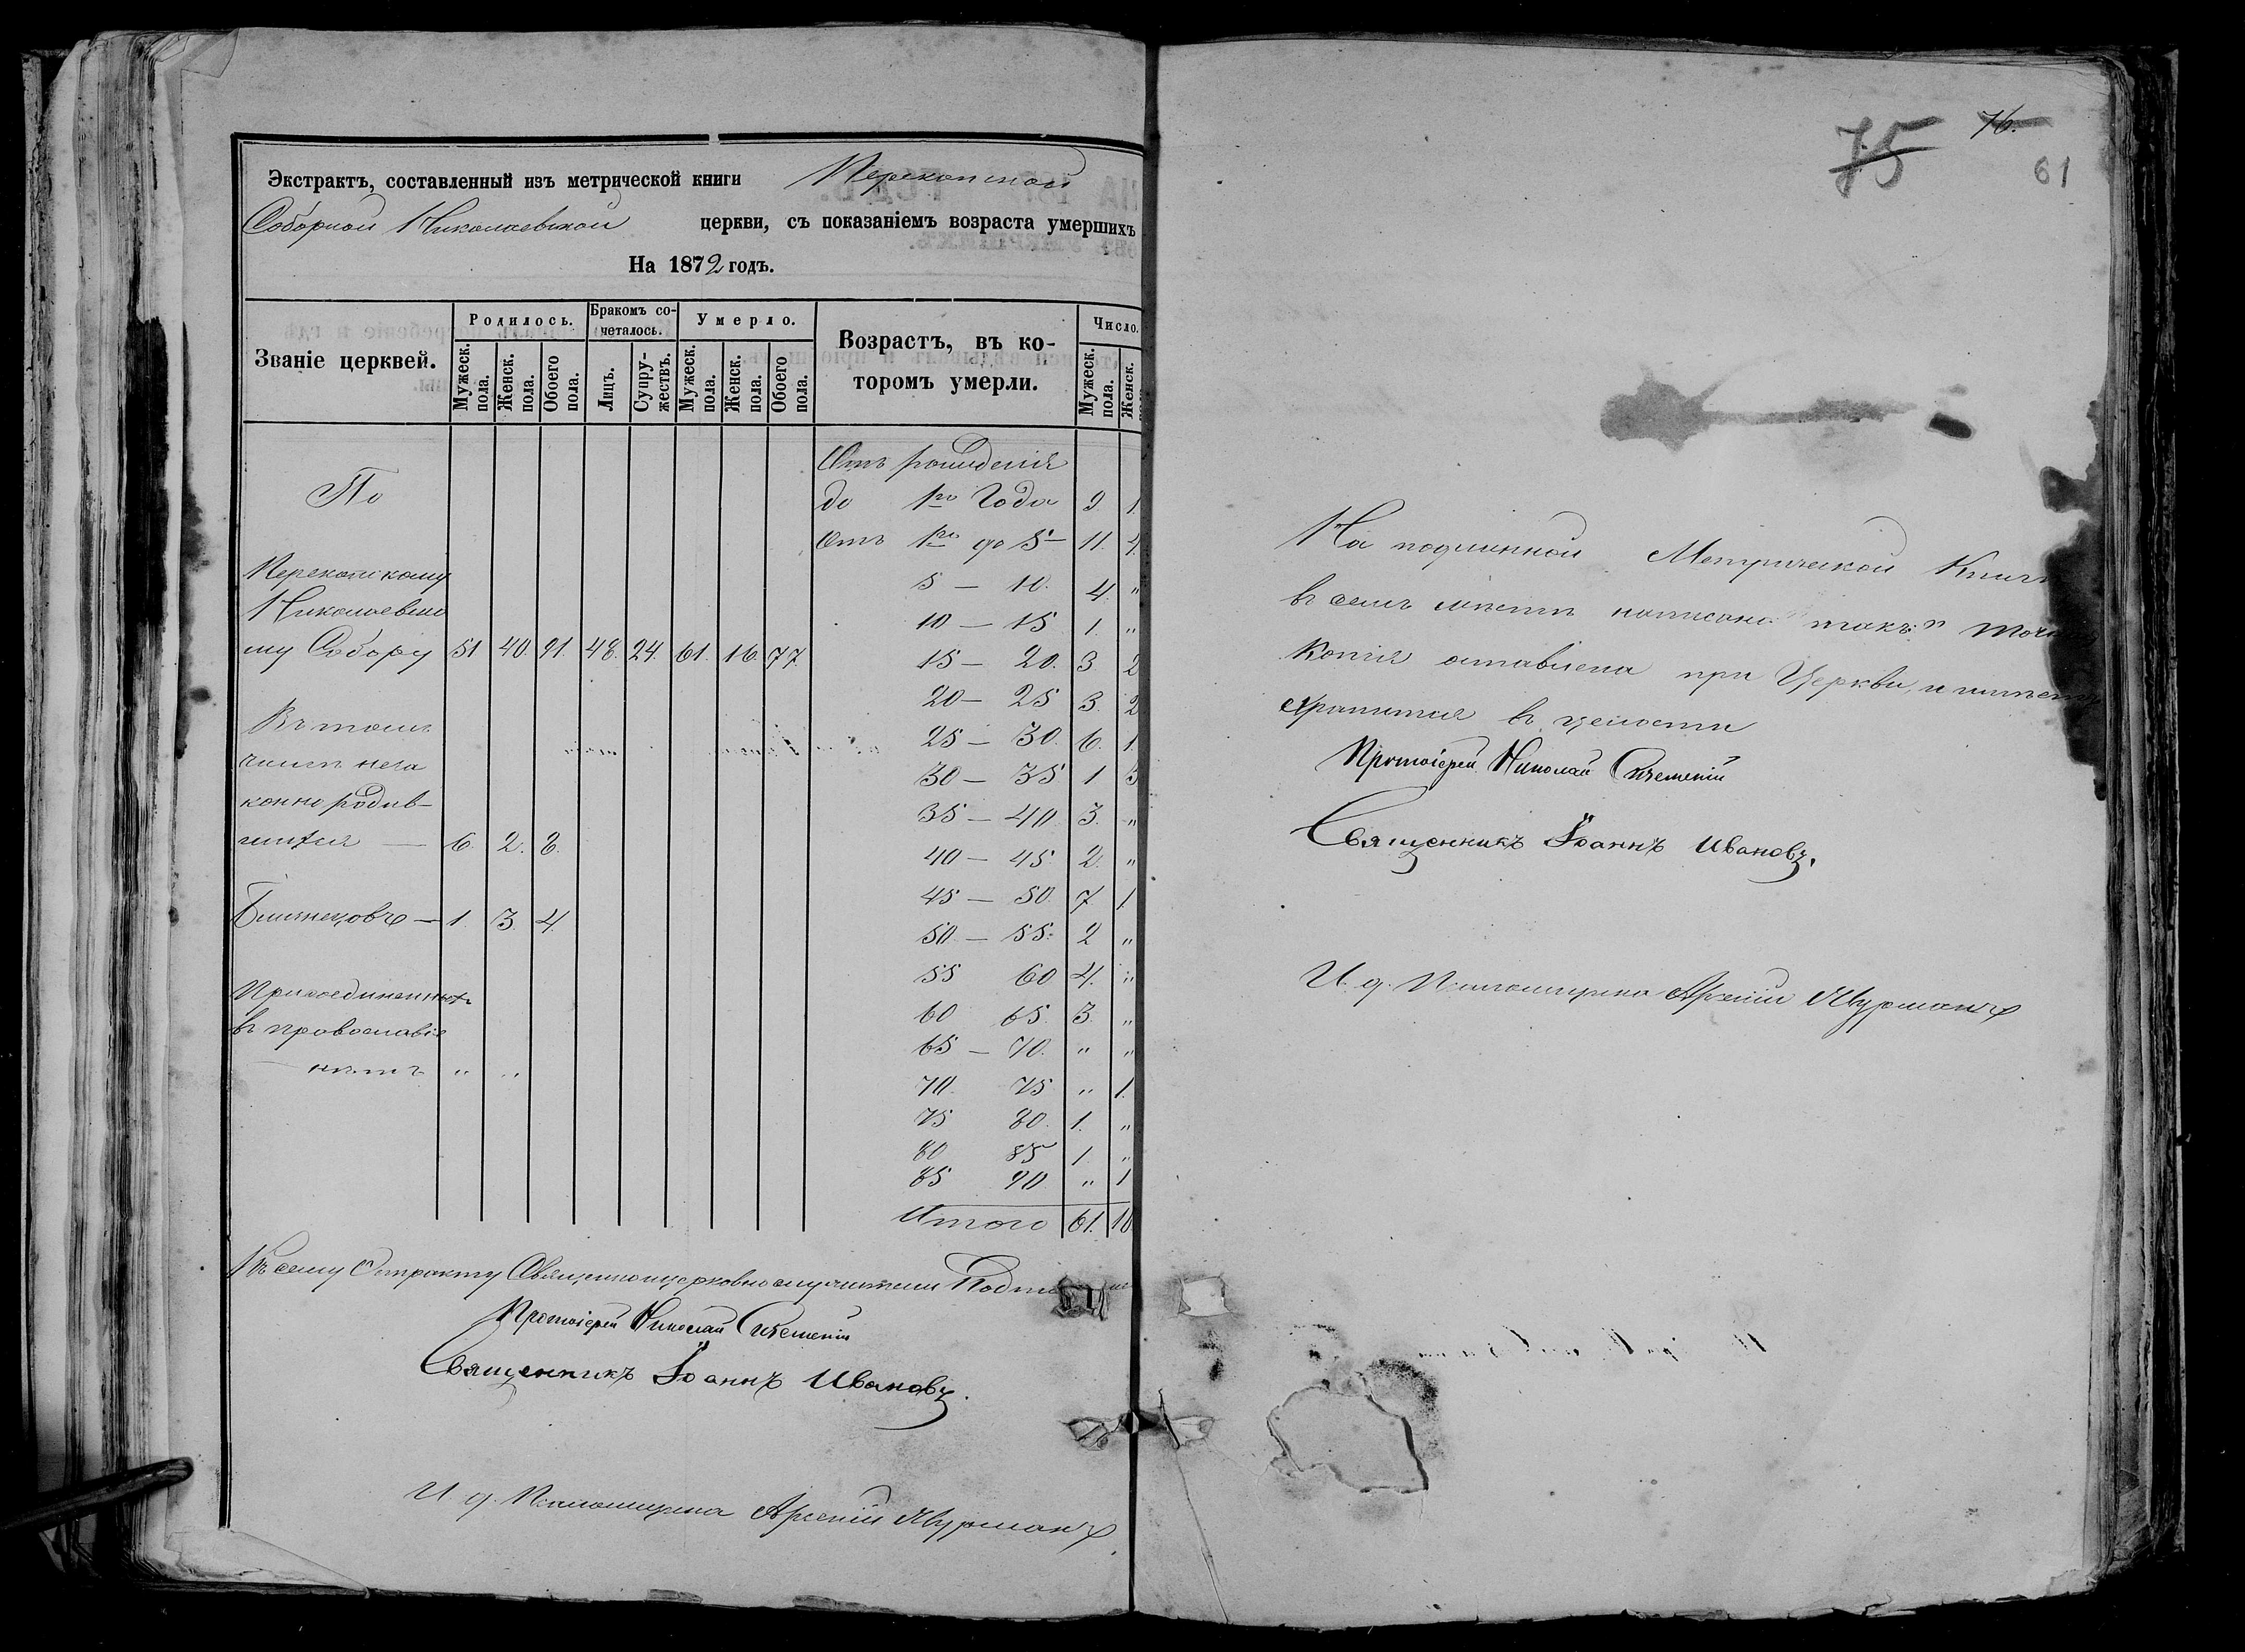 Экстрактъ, составленный изъ метрической книги Перекопской
Соборной Николаевской церкви, съ показаніемъ возраста умершихъ
На 1872 годъ.
Званіе церквей.
Родилось.
Бракомъ со-
четалось.
Умерло.
Возрастъ, въ ко-
торомъ умерли.
Число.
Мужеск. пола.
Женск. пола.
Обоего пола.
Лицъ.
Супру-
жествъ.
Мужеск. пола.
Женск. пола.
Обоего пола.
Мужеск. пола.
Женск.
По
Перекопскому
Николаевско
му Собору 51 40. 91. 48. 24. 61. 16. 77.
Въ томъ
числѣ неза
конно родив-
шихся — 6. 2. 8.
Близнецовъ — 1. 3. 4.
Присоединенныхъ
въ православіе
нѣтъ " "
Отъ рожденія
до 1го Года 9 1.
Отъ 1го до 5 11. 4.
5 — 10. 4. "
10 — 15 1. "
15 — 20. 3. 2
20 — 25 3. 2
25 — 30. 6. 1.
30 — 35 1 3
35 — 40 3. "
40 — 45 2. "
45 — 50. 7 1
50 — 55 2 "
55 60 4. "
60 65 3 "
65 — 70. " "
70. 75 " 1.
75 80. 1. "
80 85 1 "
85 90 " 1
Итого 61. 16
Къ сему Экстракту Священноцерковнослужители
Протоіерей Николай
Священникъ Іоаннъ Ивановъ.
И. д. Псаломщика Арсеній
75 76.
61
На подлинной Метрической
въ семъ мѣстѣ написано такъ:"
Копія оставлена при Церкви, и
хранится въ целости
Протоіерей Николай
Священникъ Іоаннъ Ивановъ.
И. д. Псаломщика Арсеній